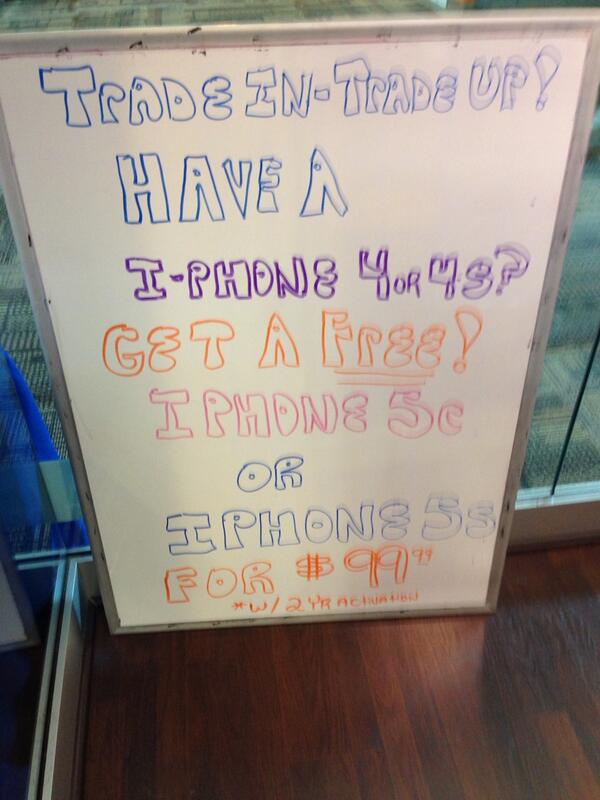 TRADE IN-TRADE UP!
HAVE A
I-PHONE 4 OR 4S?
GET A FREE!
I PHONE 5C
OR
I PHONE 5S
FOR $99.99
*W/ 2 YR ACTIVATION